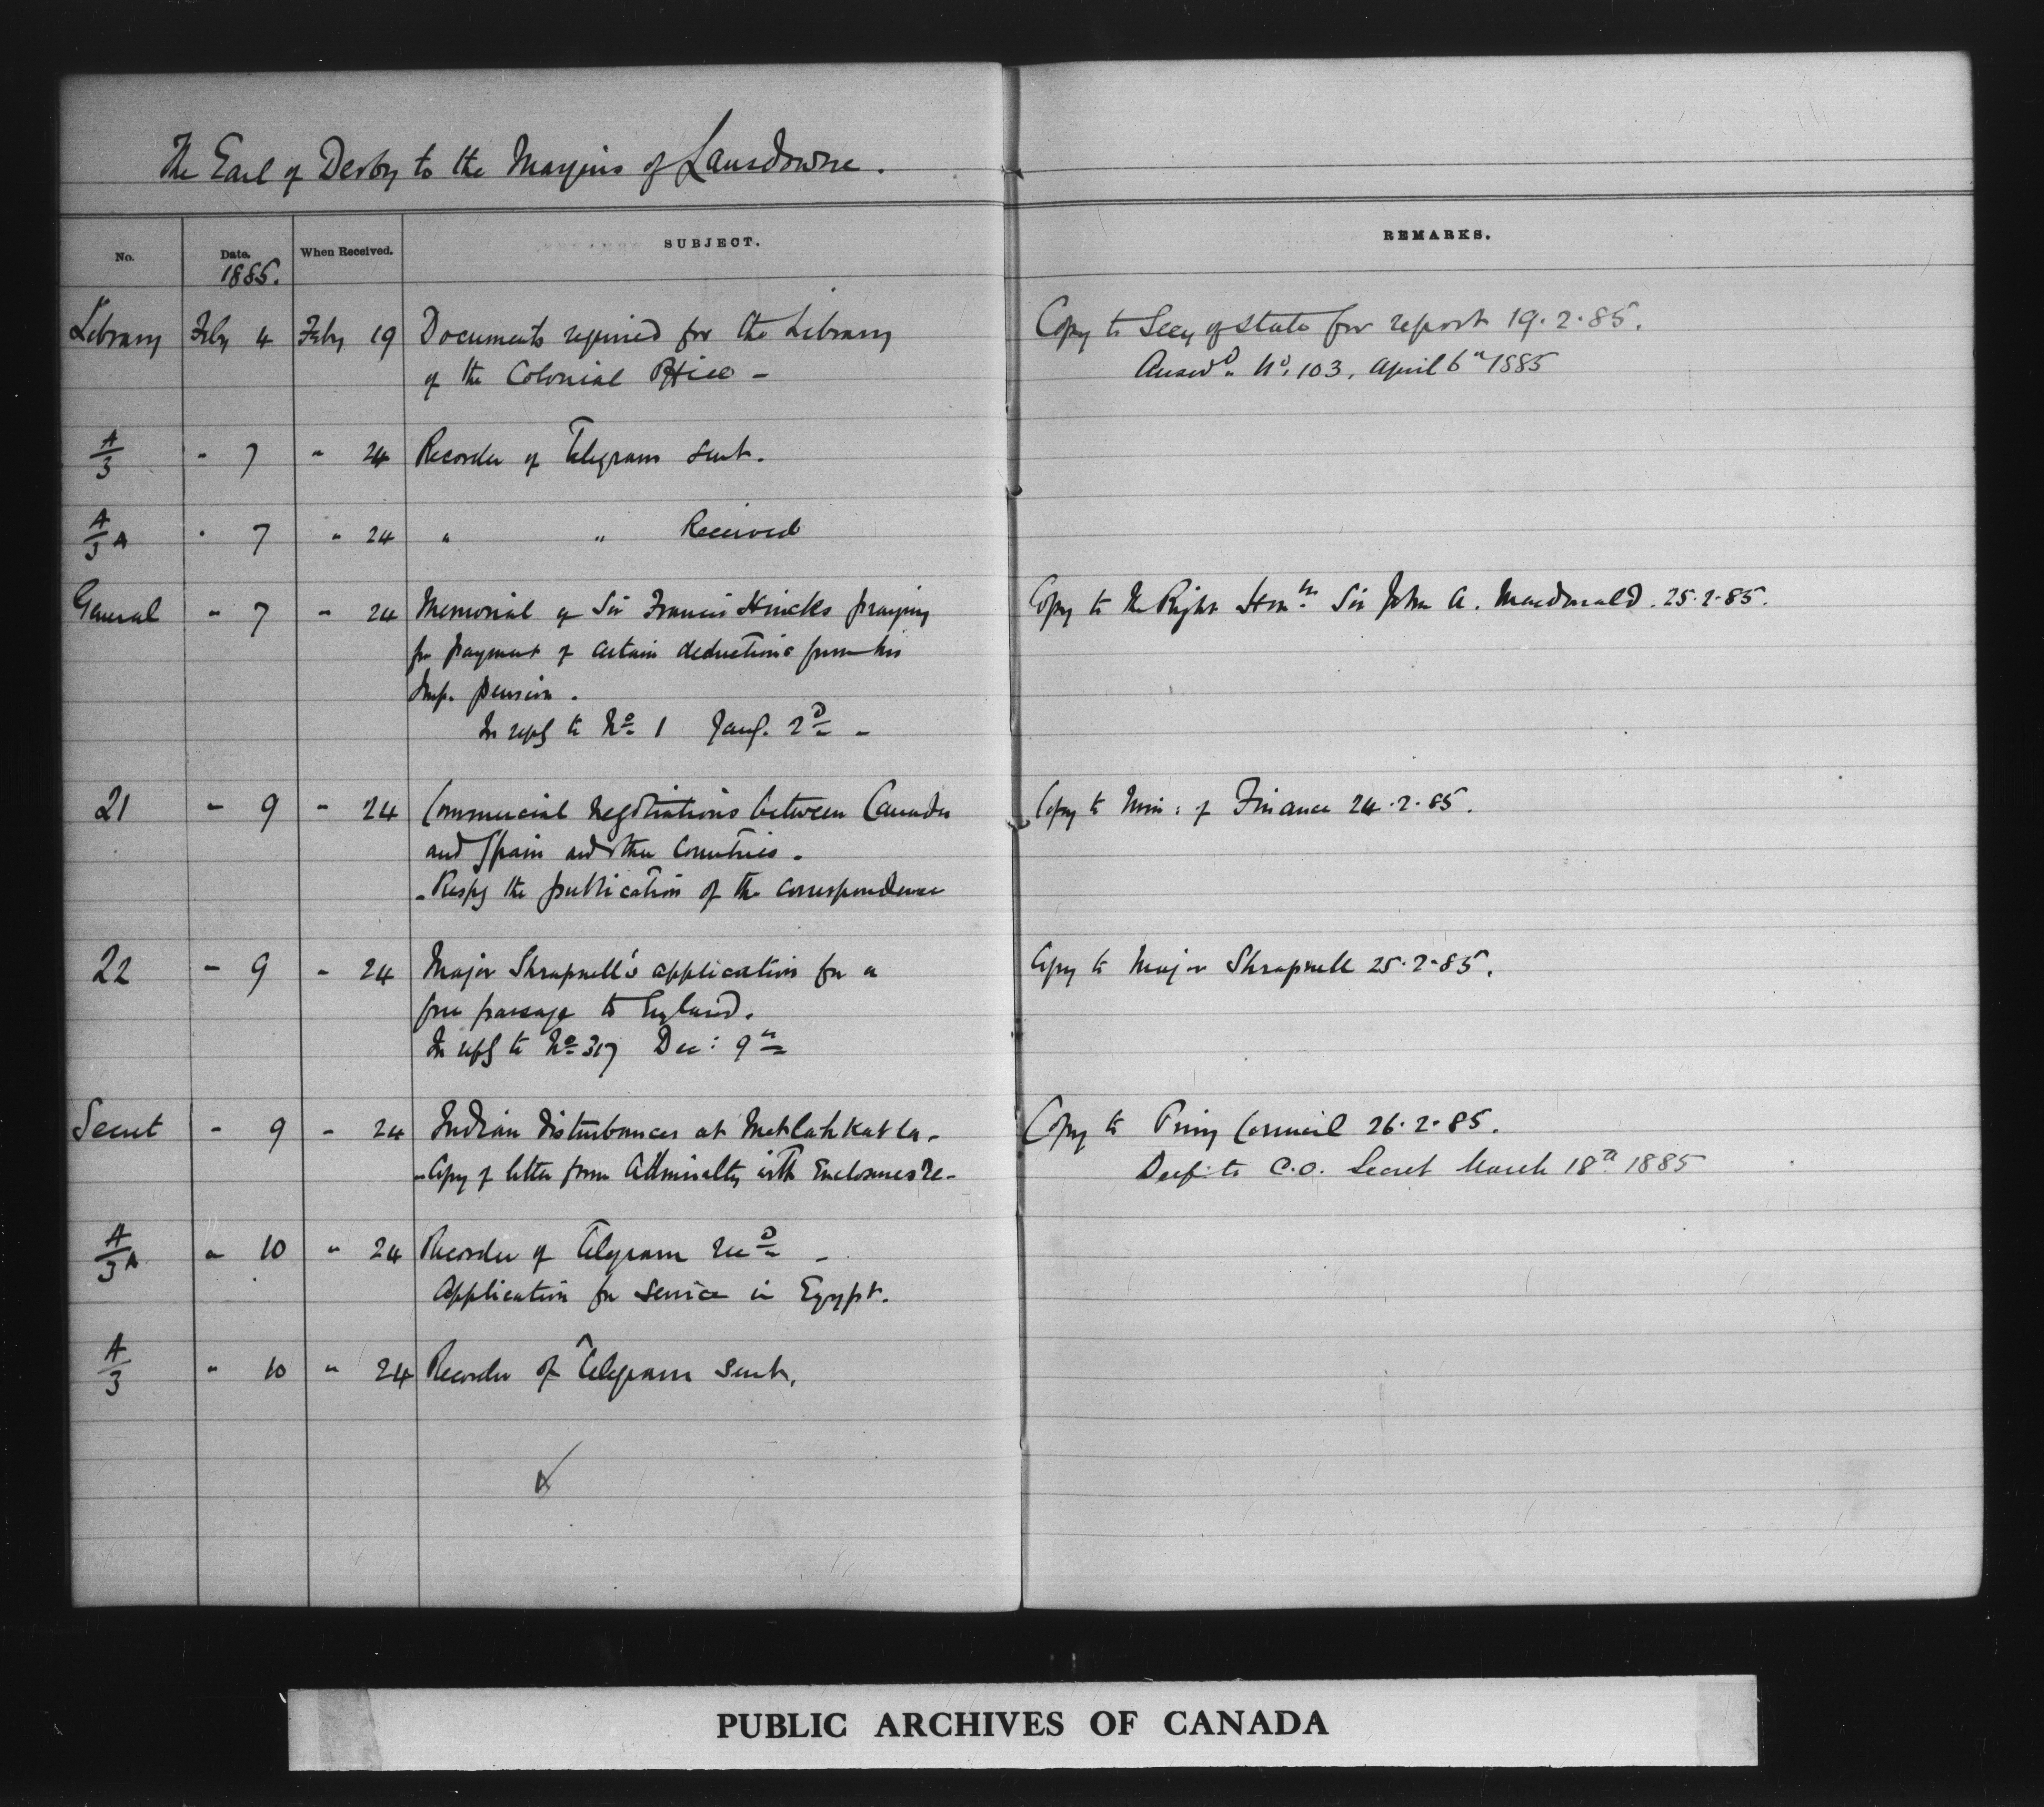 The Earl of Derby to the Marquis of Lansdowne.
No. Date. When Received. SUBJECT. REMARKS.
1885.
Library Feby 4 Feby 19 Documents required for the Library Copy to Secy of State for report 19.2.85.
of the Colonial Office – Answd. No. 103, April 6th 1885
A/3 " 7 " 24 Recorder of Telegram sent.
A/3 A " 7 " 24 " " Received
General " 7 " 24 Memorial of Sir Francis Hincks praying Copy to the Right Honble Sir John A. Macdonald. 25.2.85.
for payment of certain deductions from his
Imp. pension.
In reply to No 1 Jany. 2D –
21 " 9 " 24 Commercial negotiations between Canada Copy to Min: of Finance 24.2.85.
and Spain and other Countries –
– Respg the publication of the correspondence
22 " 9 " 24 Major Shrapnell's application for a Copy to Major Shrapnell 25.2.85.
free passage to England.
In reply to No 317 Dec: 9th
Secret " 9 " 24 Indian disturbances at Metlahkatla – Copy to Privy Council 26.2.85.
– Copy of letter from Admiralty with Enclosures re – Desp: to C.O. Secret March 18th 1885
A/3 A " 10 " 24 Recorder of Telegram recD –
Application for service in Egypt.
A/3 " 10 " 24 Recorder of Telegram sent.
PUBLIC ARCHIVES OF CANADA